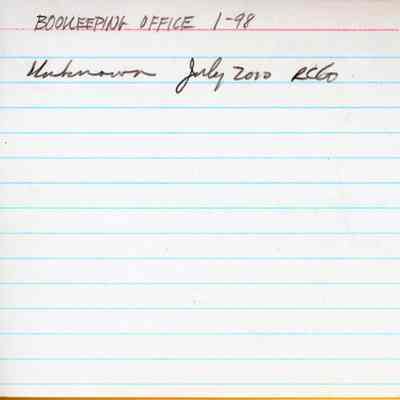 BOOKEEPING OFFICE 1-98
Unknown July 2010